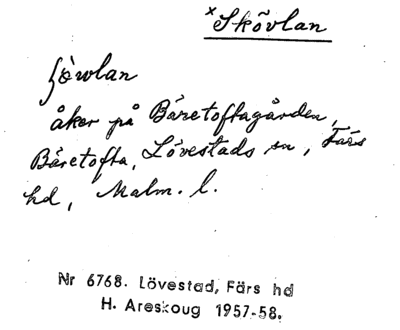 x Skövlan
ʃòwlan
åker på Båretoftagården,
Båretofta, Lövestads sn, Färs
hd, Malm. l.
Nr 6768. Lövestad, Färs hd
H. Areskoug 1957-58.